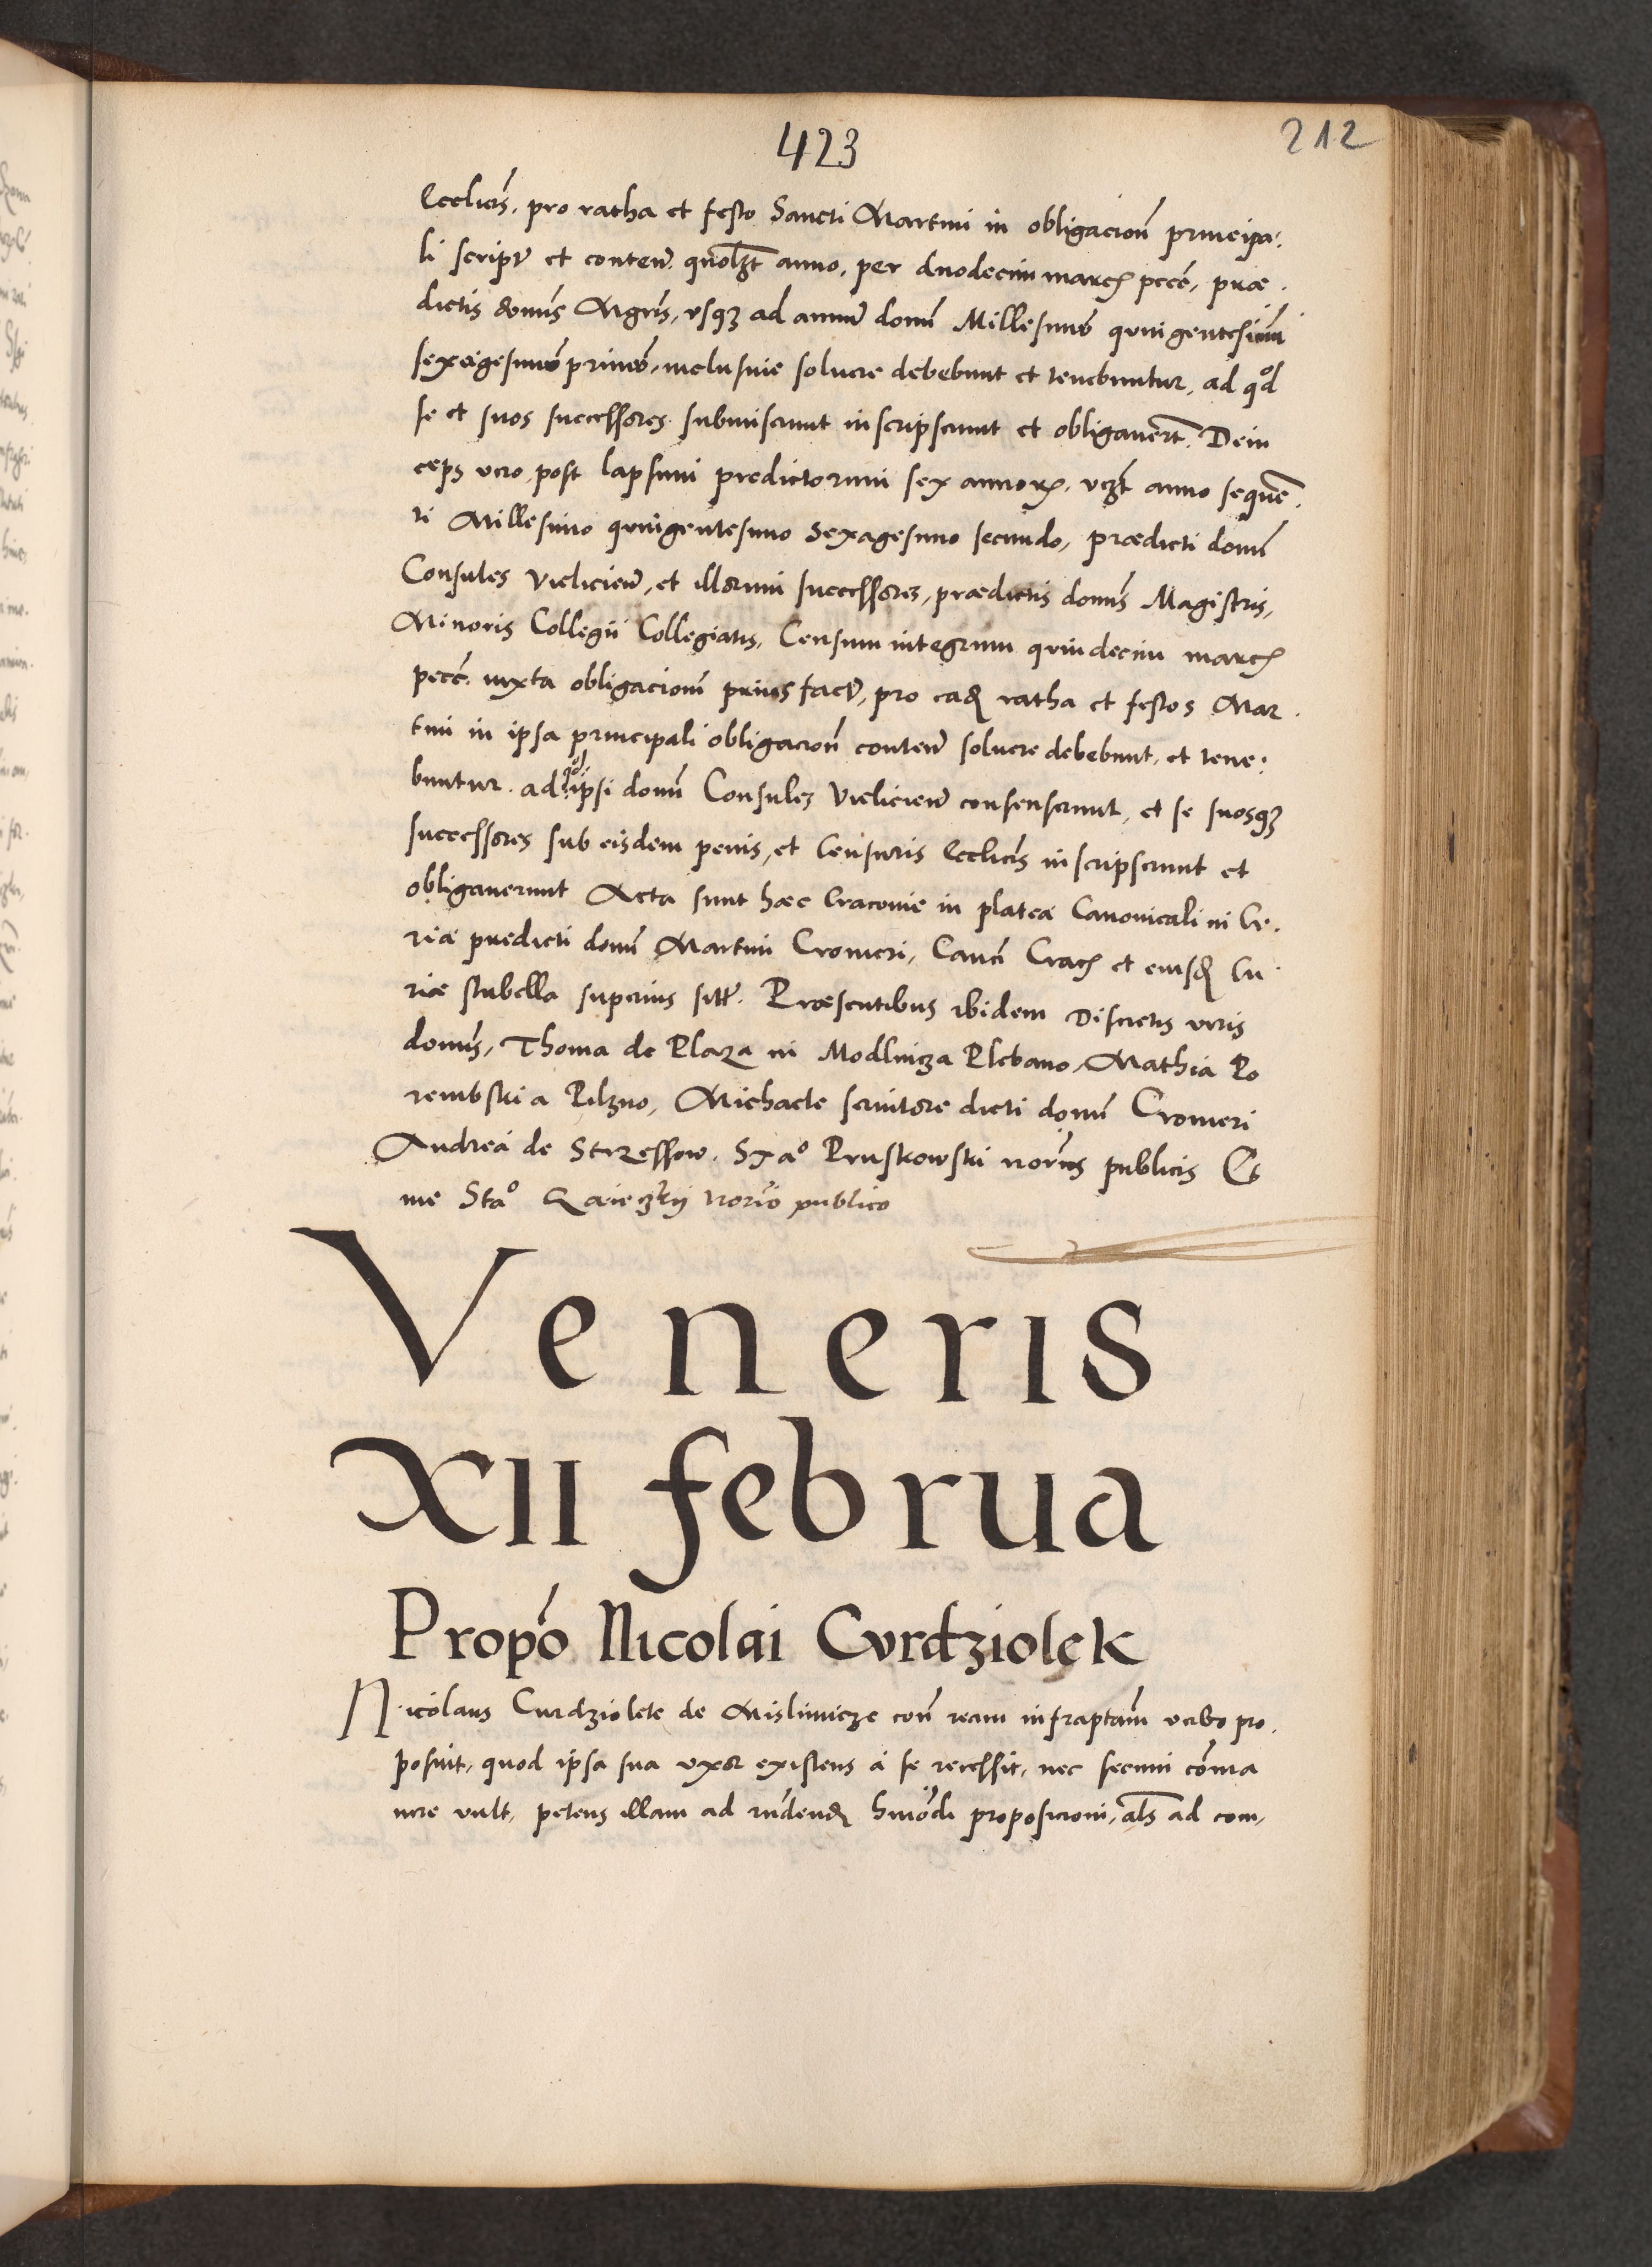 423
212
Eccliās, pro ratha et festo Sancti Martini in obligacioñ principa:
li script̃ et conteñ. quolẓt anno, per duodecim marcɂ pecc̃, præ.
dictis domīs Mgrīs, vsqꝫ ad annū domī Millesimū quingentesimū
sexagesimū primū, inclusiue soluere debebunt et tenebuntur, ad qod
se et suos successores submiserunt inscripserunt et obligauerūt. Dein
ceps vero post lapsum predictorum sex annorꝝ, vꝫt anno sequē.
ti Millesimo quingentesimo Sexagesimo secundo, prædicti domī
Consules Vielicieñ, et illorum successores, prædictis domīs Magistris,
Minoris Collegii Collegiatis, Censum integrum quindecim marcɂ
pecc̃. iuxta obligacioñ prius fact̃, pro eadꝫ ratha et festo S Mar.
tini in ipsa principali obligacioñ conteñ soluere debebunt, et tene:
buntur. ad qod ipsi domī Consules Vielicieñ consenserunt, et se suosqꝫ
successores sub eisdem penis, et Censuris Ecclicīs inscripserunt et
obligauerunt Acta sunt hæc Cracouie in platea Canonicali in Cu.
riæ predicti domī Martini Cromeri, Canc̃ Cracɂ et eiusdꝫ Cu
riæ stubella superius sitt̃. Præsentibus ibidem Discretis viris
domīs, Thoma de Plaza in Modlnicza Plebano, Mathia Po
rembski a Pilzno, Michaele seruitore dicti domī Cromeri
Andrea de Strzessow. Stāo Pruskowski norīis publicis Et
me Stāo Raieczkij norīo publico
Veneris
XII februa
Propõ Nicolai Cvrdziolek
Nicolaus Curdziolek de Mislimicze con̄ ream infraptam̄ verbo pro.
posuit, quod ipsa sua vxor existens a se recessit, nec secum com̄a
nere vult, petens illam ad rn̄dendꝫ hmōdi proposicioni, als̄ ad com,